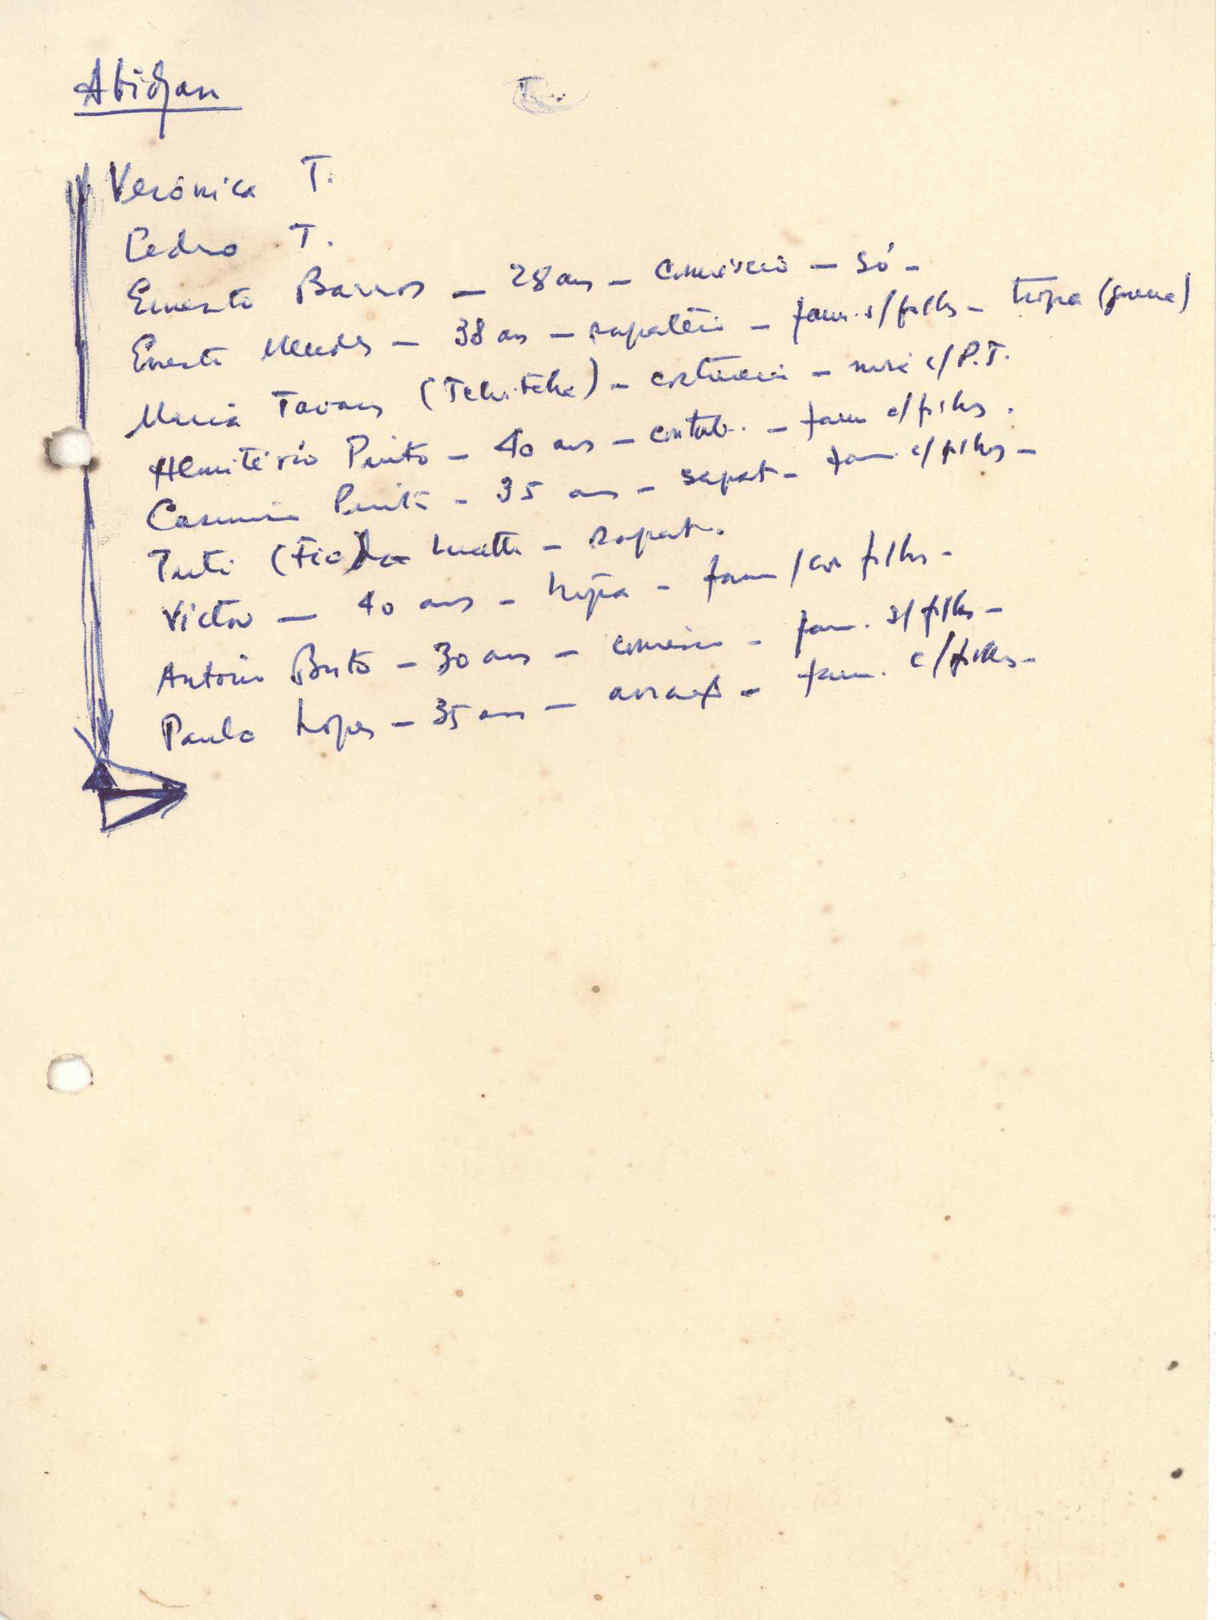 Abidjan
Verónica T.
Pedro T.
Ernesto Barros - 28 ans - comércio - só -
Ernesto Mendes - 38 ans - sapateiro - fam. s/filhs - tropa (guerra)
Maria Tavares (Tchitche) - costureira - c/P.T.
Hemitério Pinto - 40 ans - contab. - fam c/filhs.
Casimiro Pinto - 35 ans - sapat - fam. c/filhs -
Tuti (Fió) - sapat.
Victor - 40 ans - tropa - fam / con filhs -
António Brito - 30 ans - comércio - fam. s/filhs -
Paulo Lopes - 35 ans - - fam. c/filhs -